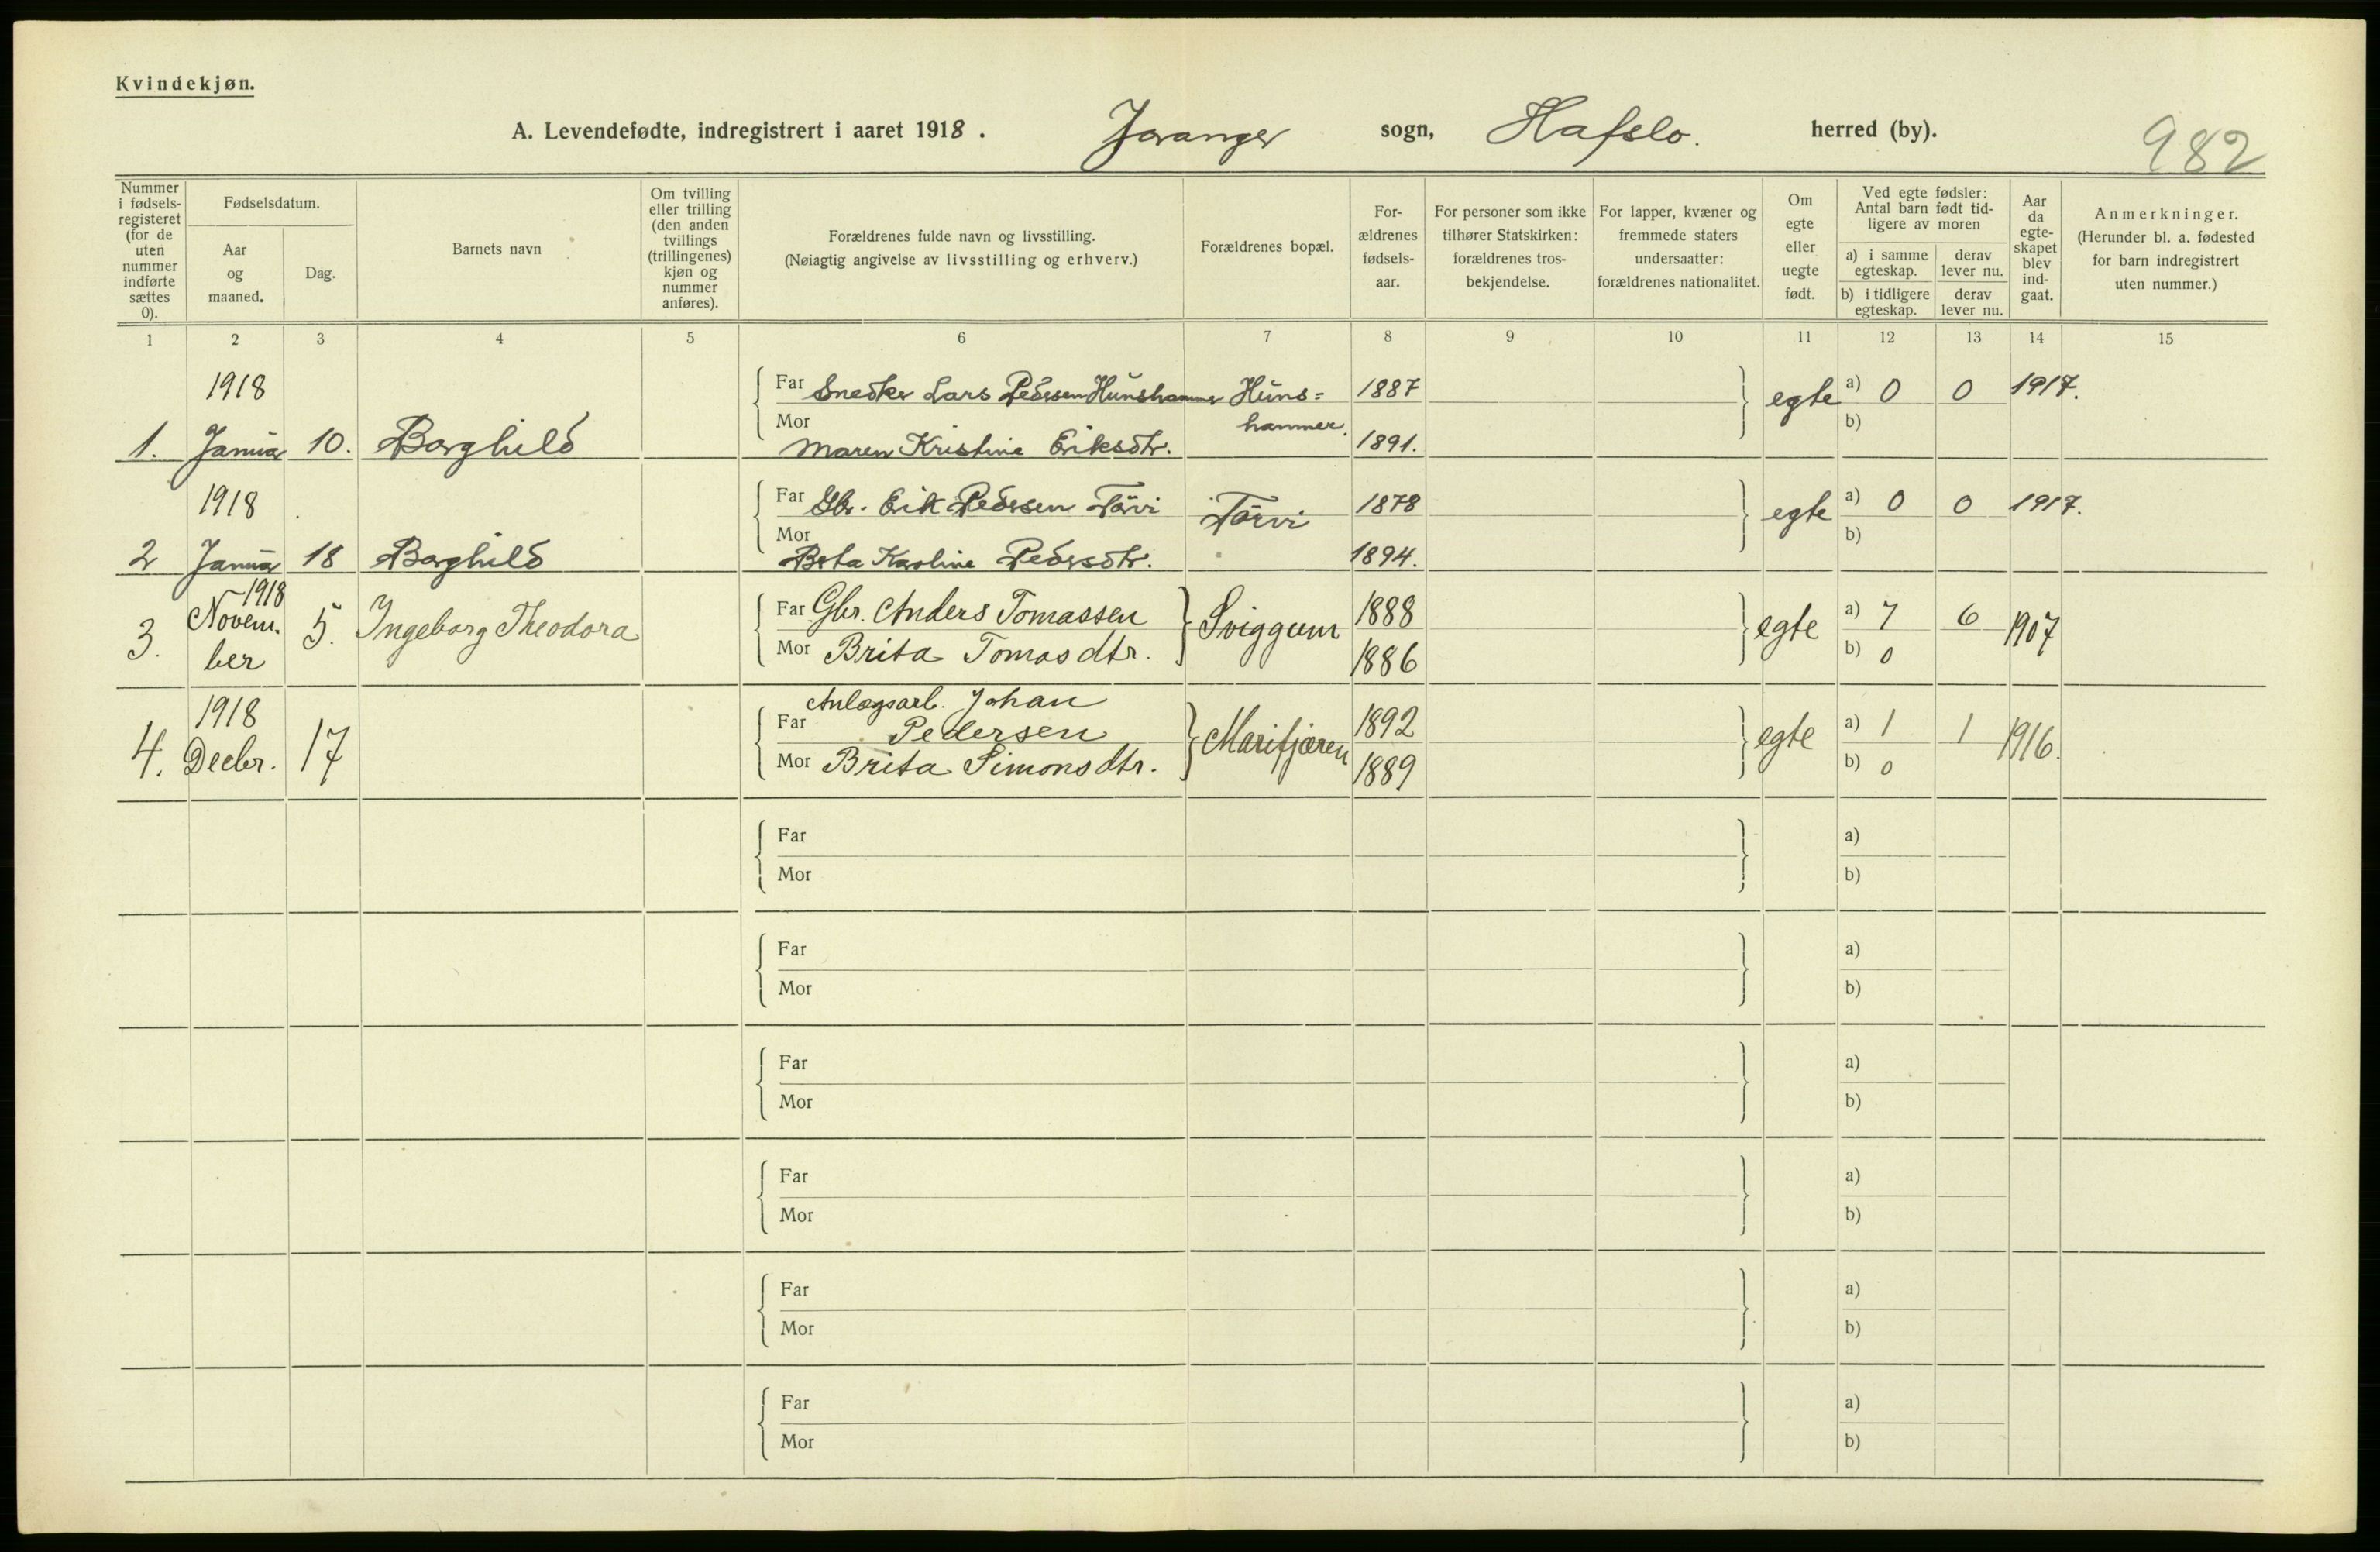 Kvindekjøn.
A. Levendefødte, indregistrert i aaret 1918. Joranger sogn, Hafslo. herred (by).
982
Nummer i fødsels-registeret (for de uten nummer indførte sættes 0).
Fødselsdatum.
Aar og maaned.
Dag.
Barnets navn
Om tvilling eller trilling (den anden tvillings (trillingenes) kjøn og nummer anføres).
Forældrenes fulde navn og livsstilling.
(Nøiagtig angivelse av livsstilling og erhverv.)
Forældrenes bopæl.
For-ældrenes fødsels-aar.
For personer som ikke tilhører Statskirken: forældrenes tros-bekjendelse.
For lapper, kvæner og fremmede staters undersaatter: forældrenes nationalitet.
Om egte eller uegte født.
Ved egte fødsler: Antal barn født tid-ligere av moren
a) i samme egteskap.
derav lever nu.
b) i tidligere egteskap.
derav lever nu.
Aar da egte-skapet blev ind-gaat.
Anmerkninger.
(Herunder bl. a. fødested for barn indregistrert uten nummer.)
1 2 3 4 5 6 7 8 9 10 11 12 13 14 15
1918 Far Snedker Lars Pedersen Hunshammer Huns= 1887 egte a) 0 0 1917.
1. Januar 10. Borghild Mor Maren Kristine Eriksdtr. hammer. 1891. b)
1918 Far Gbr. Erik Pedersen Törvi Törvi 1878 egte a) 0 0 1917.
2 Januar 18 Borghild Mor Berta Karoline Pedersdtr. 1894. b)
1918
3. Novem-ber 5. Ingeborg Theodora Far Gbr. Anders Tomassen Sviggum 1888 egte a) 7 6 1907
Mor Brita Tomasdtr. 1886 b) 0
1918 Anlægsarb. Johan
4. Decbr. 17 Far Pedersen Marifjæren 1892 egte a) 1 1 1916.
Mor Brita Simonsdtr. 1889 b) 0
Far a)
Mor b)
Far a)
Mor b)
Far a)
Mor b)
Far a)
Mor b)
Far a)
Mor b)
Far a)
Mor b)